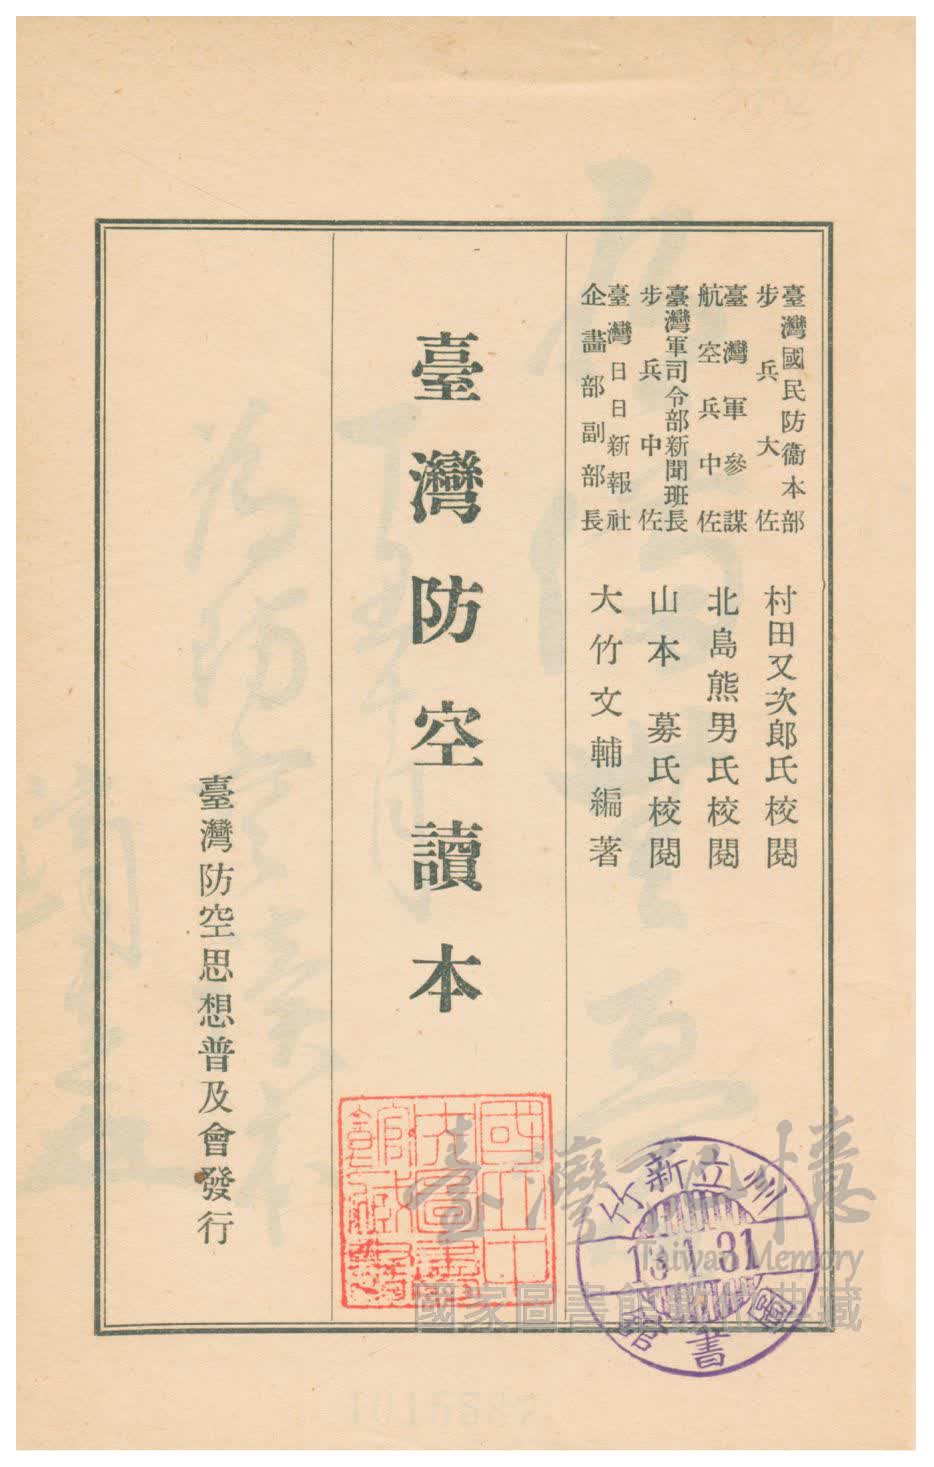 臺灣國民防衞本部
步兵大佐
村田又次郎氏校閱
臺灣軍參謀
航空兵中佐
北島熊男氏校閱
臺灣軍司令部新聞班長
步兵中佐
山本募氏校閱
臺灣日日新報社
企畫部副部長
大竹文輔編著
臺灣防空讀本
臺灣防空思想普及會發行
國立中
央圖書
館藏書
州立新竹
13.1.31
圖書館
臺灣記憶
Taiwan Memory
國家圖書館 典藏